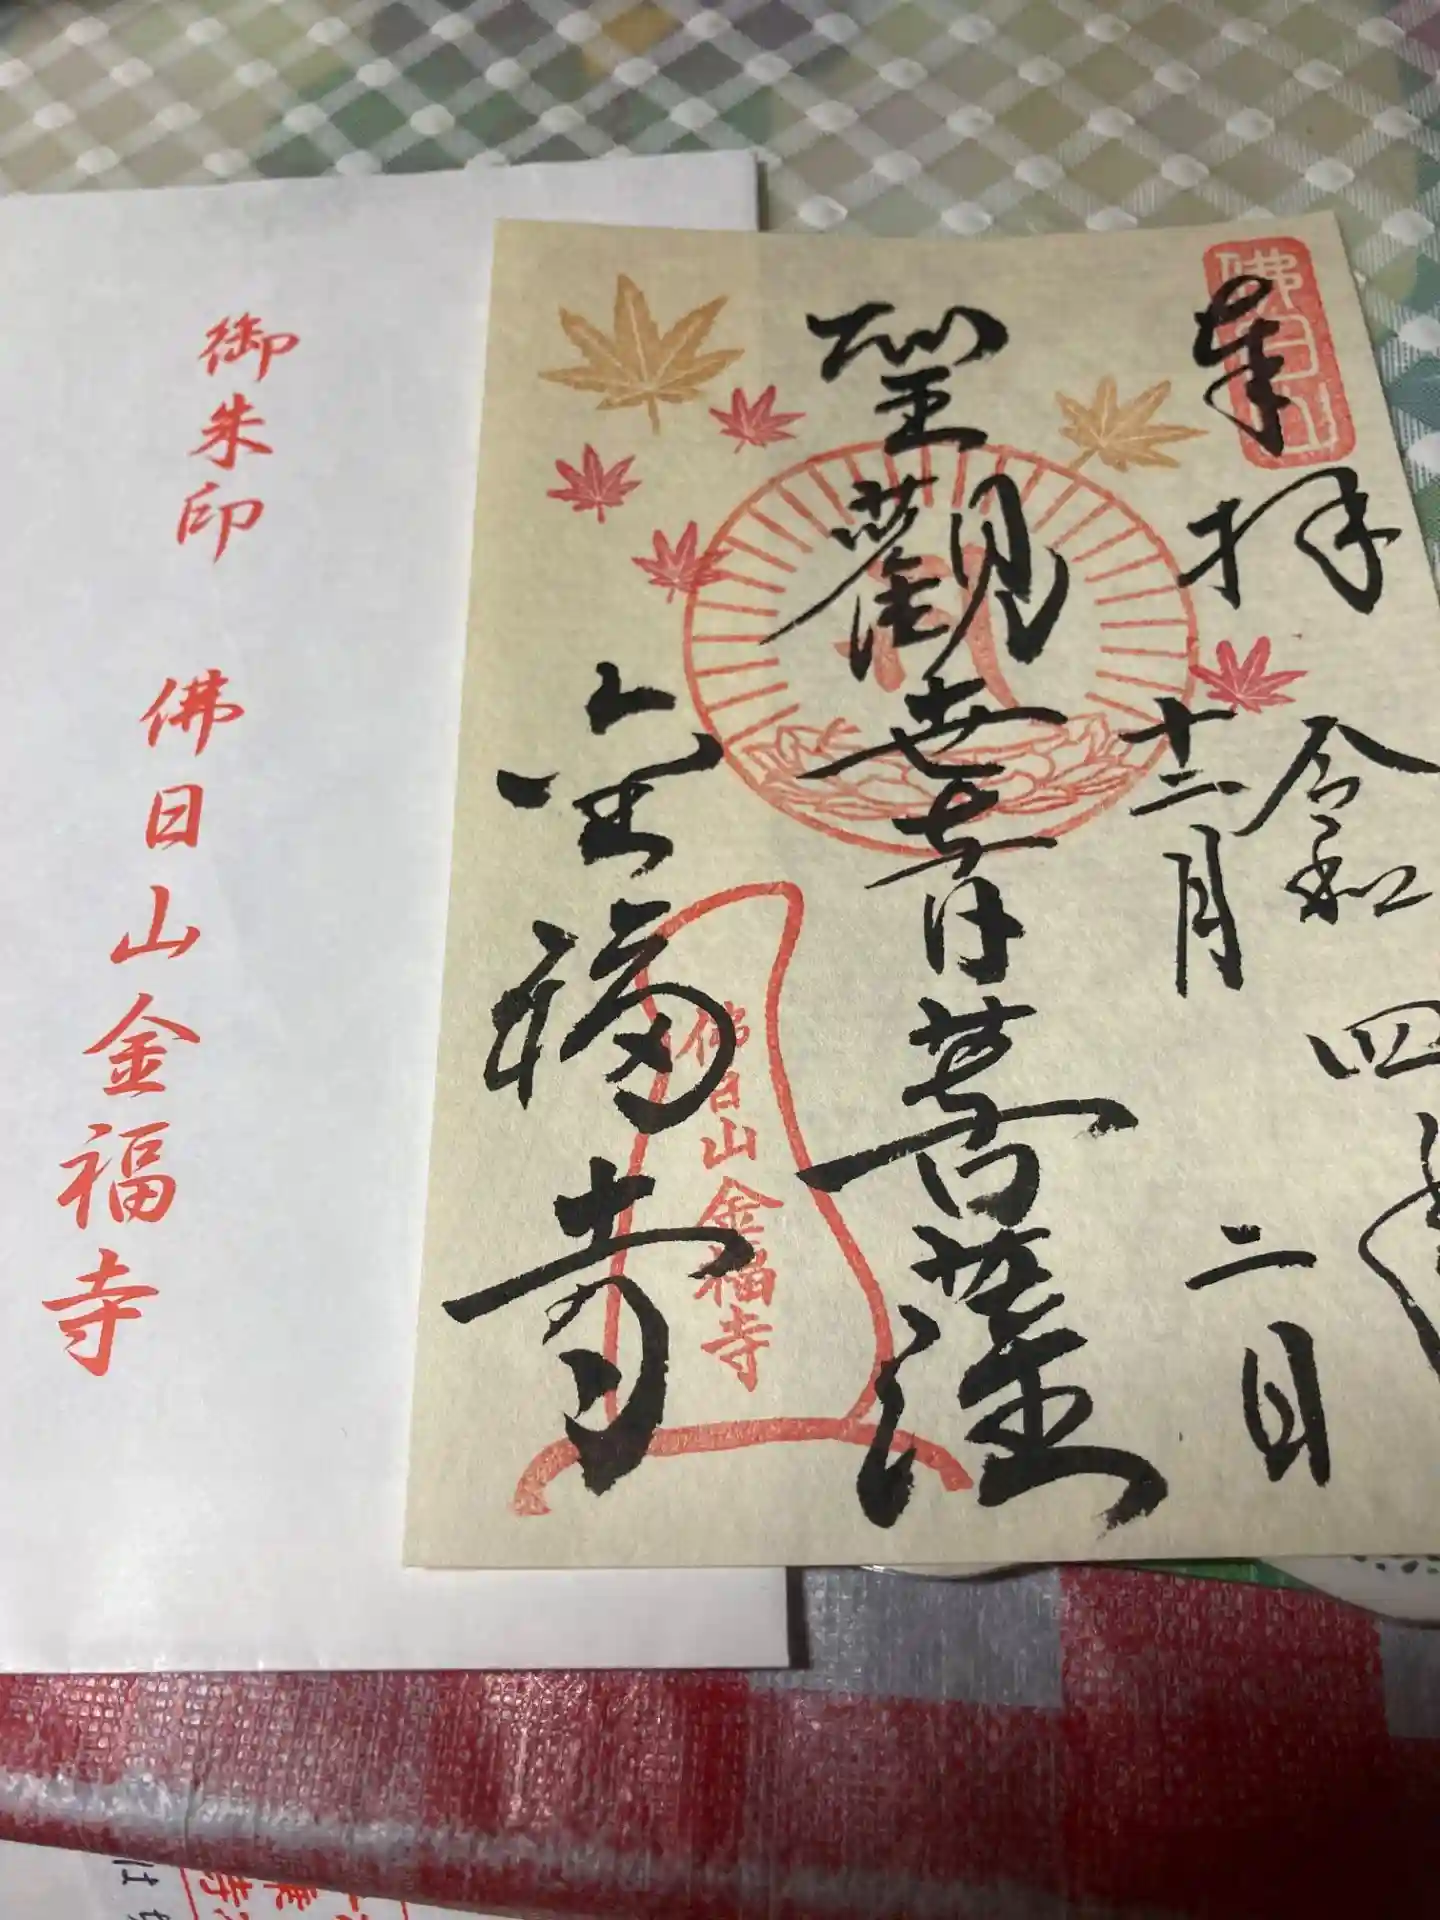 奉拝
令和四年
十二月二日
聖観世音菩薩
金福寺
佛日山
佛日山
金福寺
御朱印
佛日山金福寺